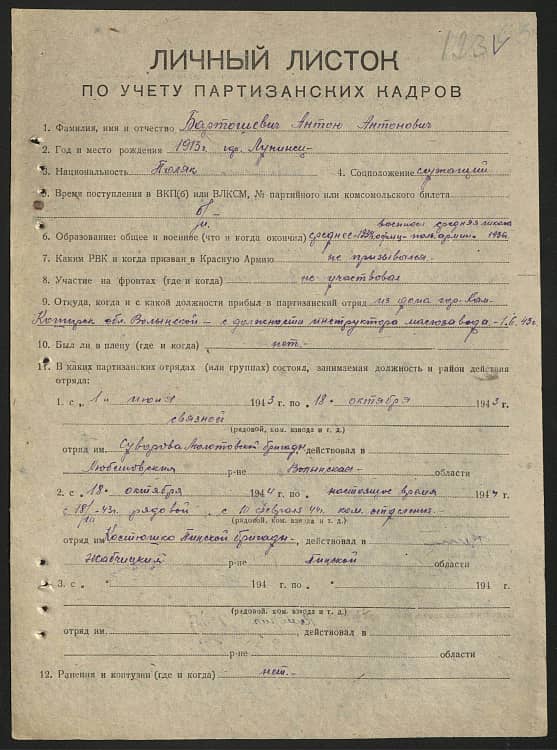 123
ЛИЧНЫЙ ЛИСТОК
ПО УЧЕТУ ПАРТИЗАНСКИХ КАДРОВ
1. Фамилия, имя и отчество Бартошевич Антон Антонович
2. Год и место рождения 1913г. гор. Лунинец
3. Национальность Поляк 4. Соцположение служащий
5. Время поступления в ВКП(б) или ВЛКСМ, № партийного или комсомольского билета
б/п.
военное средняя школа
6. Образование: общее и военное (что и когда окончил) среднее польск. армии 1936
7. Каким РВК и когда призван в Красную Армию не призывался.
8. Участие на фронтах (где и когда) не участвовал
9. Откуда, когда и с какой должности прибыл в партизанский отряд из дома гор. Кам.
Каширск обл. Волынской – с должности инструктора маслозавода – 1.6.43г.
10. Был ли в плену (где и когда) нет. –
11. В каких партизанских отрядах (или группах) состоял, занимаемая должность и район действия
отряда:
1. с „ 1" июня 1943 г. по „ 18 " октября 1943 г.
связной
(рядовой, ком. взвода и т. д.)
отряд им. Суворова Молотовской бригады, действовал в
Любешовский р-не Волынская области
2. с „ 18" октября 1944 г. по „ " настоящее время 1944 г.
с 18/ – 43г. рядовой, с 10 февраля 44г. ком. отделения
(рядовой, ком. взвода и т. д.)
отряд им. Костюшко Пинской бригады, действовал в
Жабчицкий р-не Пинской области
3. с „ " 194 г. по „ " 194 г.
(рядовой, ком. взвода и т. д.)
отряд им. , действовал в
р-не области
12. Ранения и контузии (где и когда) нет. –